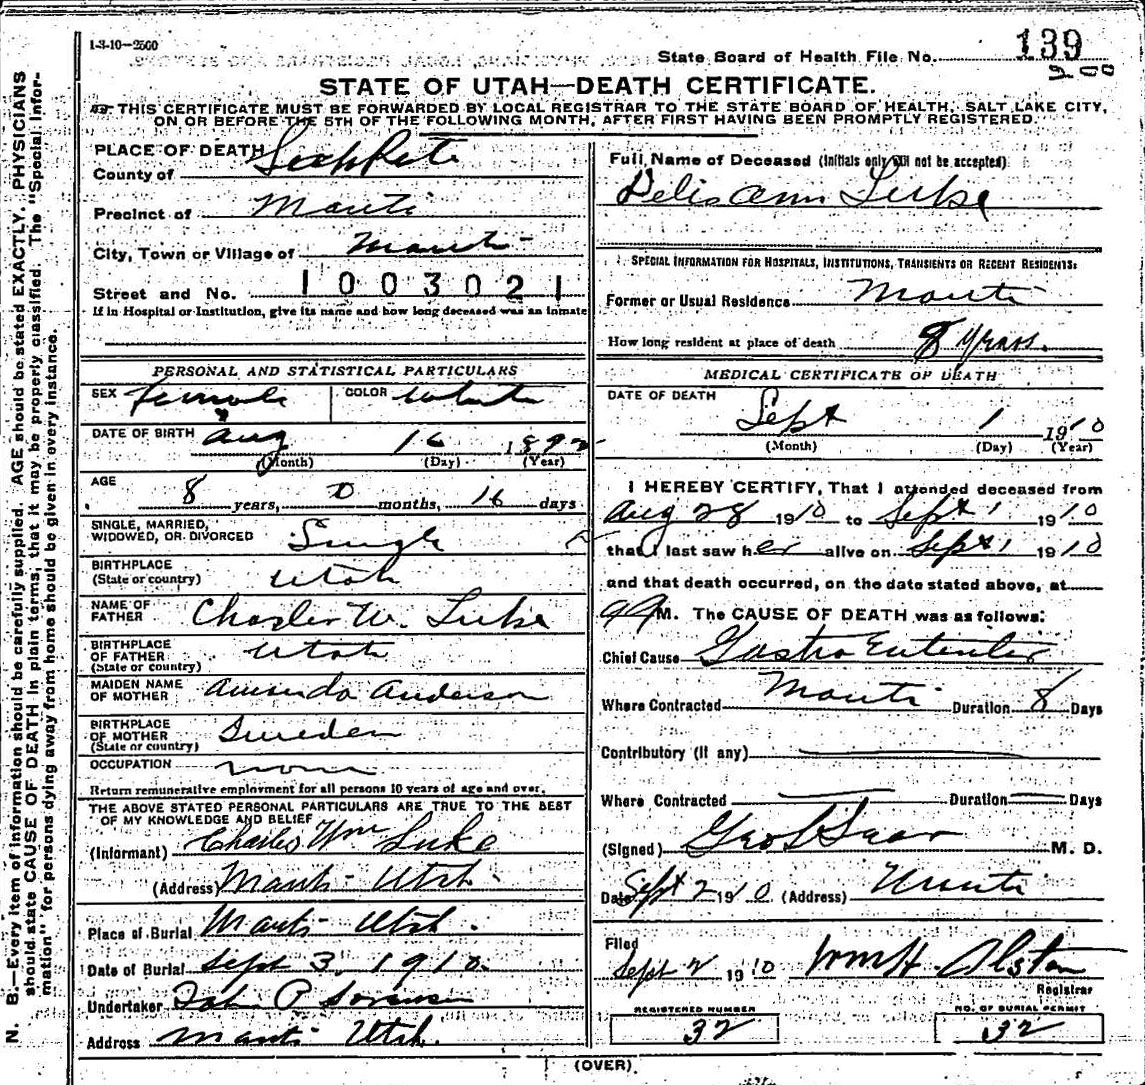 1-3-10—2500
State Board of Health File No. 139
STATE OF UTAH—DEATH CERTIFICATE.
THIS CERTIFICATE MUST BE FORWARDED BY LOCAL REGISTRAR TO THE STATE BOARD OF HEALTH, SALT LAKE CITY,
ON OR BEFORE THE 5TH OF THE FOLLOWING MONTH, AFTER FIRST HAVING BEEN PROMPTLY REGISTERED.
PLACE OF DEATH
County of SanPete
Precinct of Manti
City, Town or Village of Manti
Street and No. 1003021
If in Hospital or Institution, give its name and how long deceased was an inmate
PERSONAL AND STATISTICAL PARTICULARS
SEX Female COLOR White
DATE OF BIRTH Aug 16 1892
(Month) (Day) (Year)
AGE
8 years, 0 months, 16 days
SINGLE, MARRIED,
WIDOWED, OR DIVORCED Single
BIRTHPLACE
(State or country) Utah
NAME OF
FATHER Charles W. Luke
BIRTHPLACE
OF FATHER Utah
(State or country)
MAIDEN NAME
OF MOTHER Amanda Anderson
BIRTHPLACE
OF MOTHER Sweden
(State or country)
OCCUPATION none
Return remunerative employment for all persons 10 years of age and over.
THE ABOVE STATED PERSONAL PARTICULARS ARE TRUE TO THE BEST
OF MY KNOWLEDGE AND BELIEF
(Informant) Charles Wm Luke
(Address) Manti Utah.
Place of Burial Manti Utah.
Date of Burial Sept 3, 1910.
Undertaker John P Sorensen
Address Manti Utah.
Full Name of Deceased (Initials only will not be accepted)
Ann Luke
SPECIAL INFORMATION FOR HOSPITALS, INSTITUTIONS, TRANSIENTS OR RECENT RESIDENTS:
Former or Usual Residence Manti
How long resident at place of death 8 years.
MEDICAL CERTIFICATE OF DEATH
DATE OF DEATH
Sept 1 1910
(Month) (Day) (Year)
I HEREBY CERTIFY, That I attended deceased from
Aug 28 1910 to Sept 1 1910
that I last saw her alive on Sept 1 1910
and that death occurred, on the date stated above, at
M. The CAUSE OF DEATH was as follows:
Chief Cause Gastro Enteritis
Where Contracted Manti Duration 8 Days
Contributory (if any)
Where Contracted Duration Days
(Signed) Geo L M. D.
Date Sept 2 1910 (Address) Manti
Filed
Sept 2 1910 Wm H. Alston
Registrar
REGISTERED NUMBER
32
NO. OF BURIAL PERMIT
32
(OVER)
N. B.—Every item of information should be carefully supplied. AGE should be stated EXACTLY. PHYSICIANS
should state CAUSE OF DEATH in plain terms, that it may be properly classified. The "Special Infor-
mation" for persons dying away from home should be given in every instance.